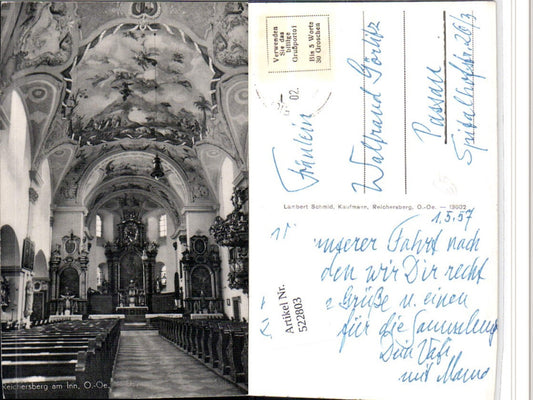 Reichersberg am Inn, O.-Oe.
Verwenden
Sie das
billige
Grußporto!
Bis 5 Worte
30 Groschen
02
Fräulein
Waltraud
Passau
Lambert Schmid, Kaufmann, Reichersberg, O.-Oe. — 13602
1.5.57
unserer Fahrt nach
den wir Dir recht
Grüße u. einen
für die Sammlung
Dein Vati
mit Mama
Artikel Nr.
522803